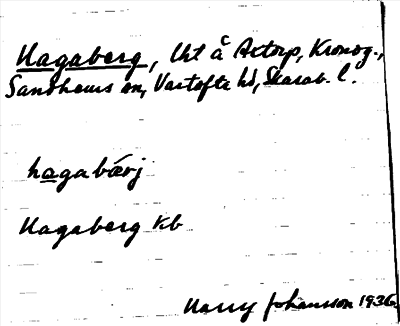 Hagaberg, lht å Axtorp, Kronog.,
Sandhems sn, Vartofta hd, Skarab. l.
hagabärj
Hagaberg kb
Harry Johansson 1936.